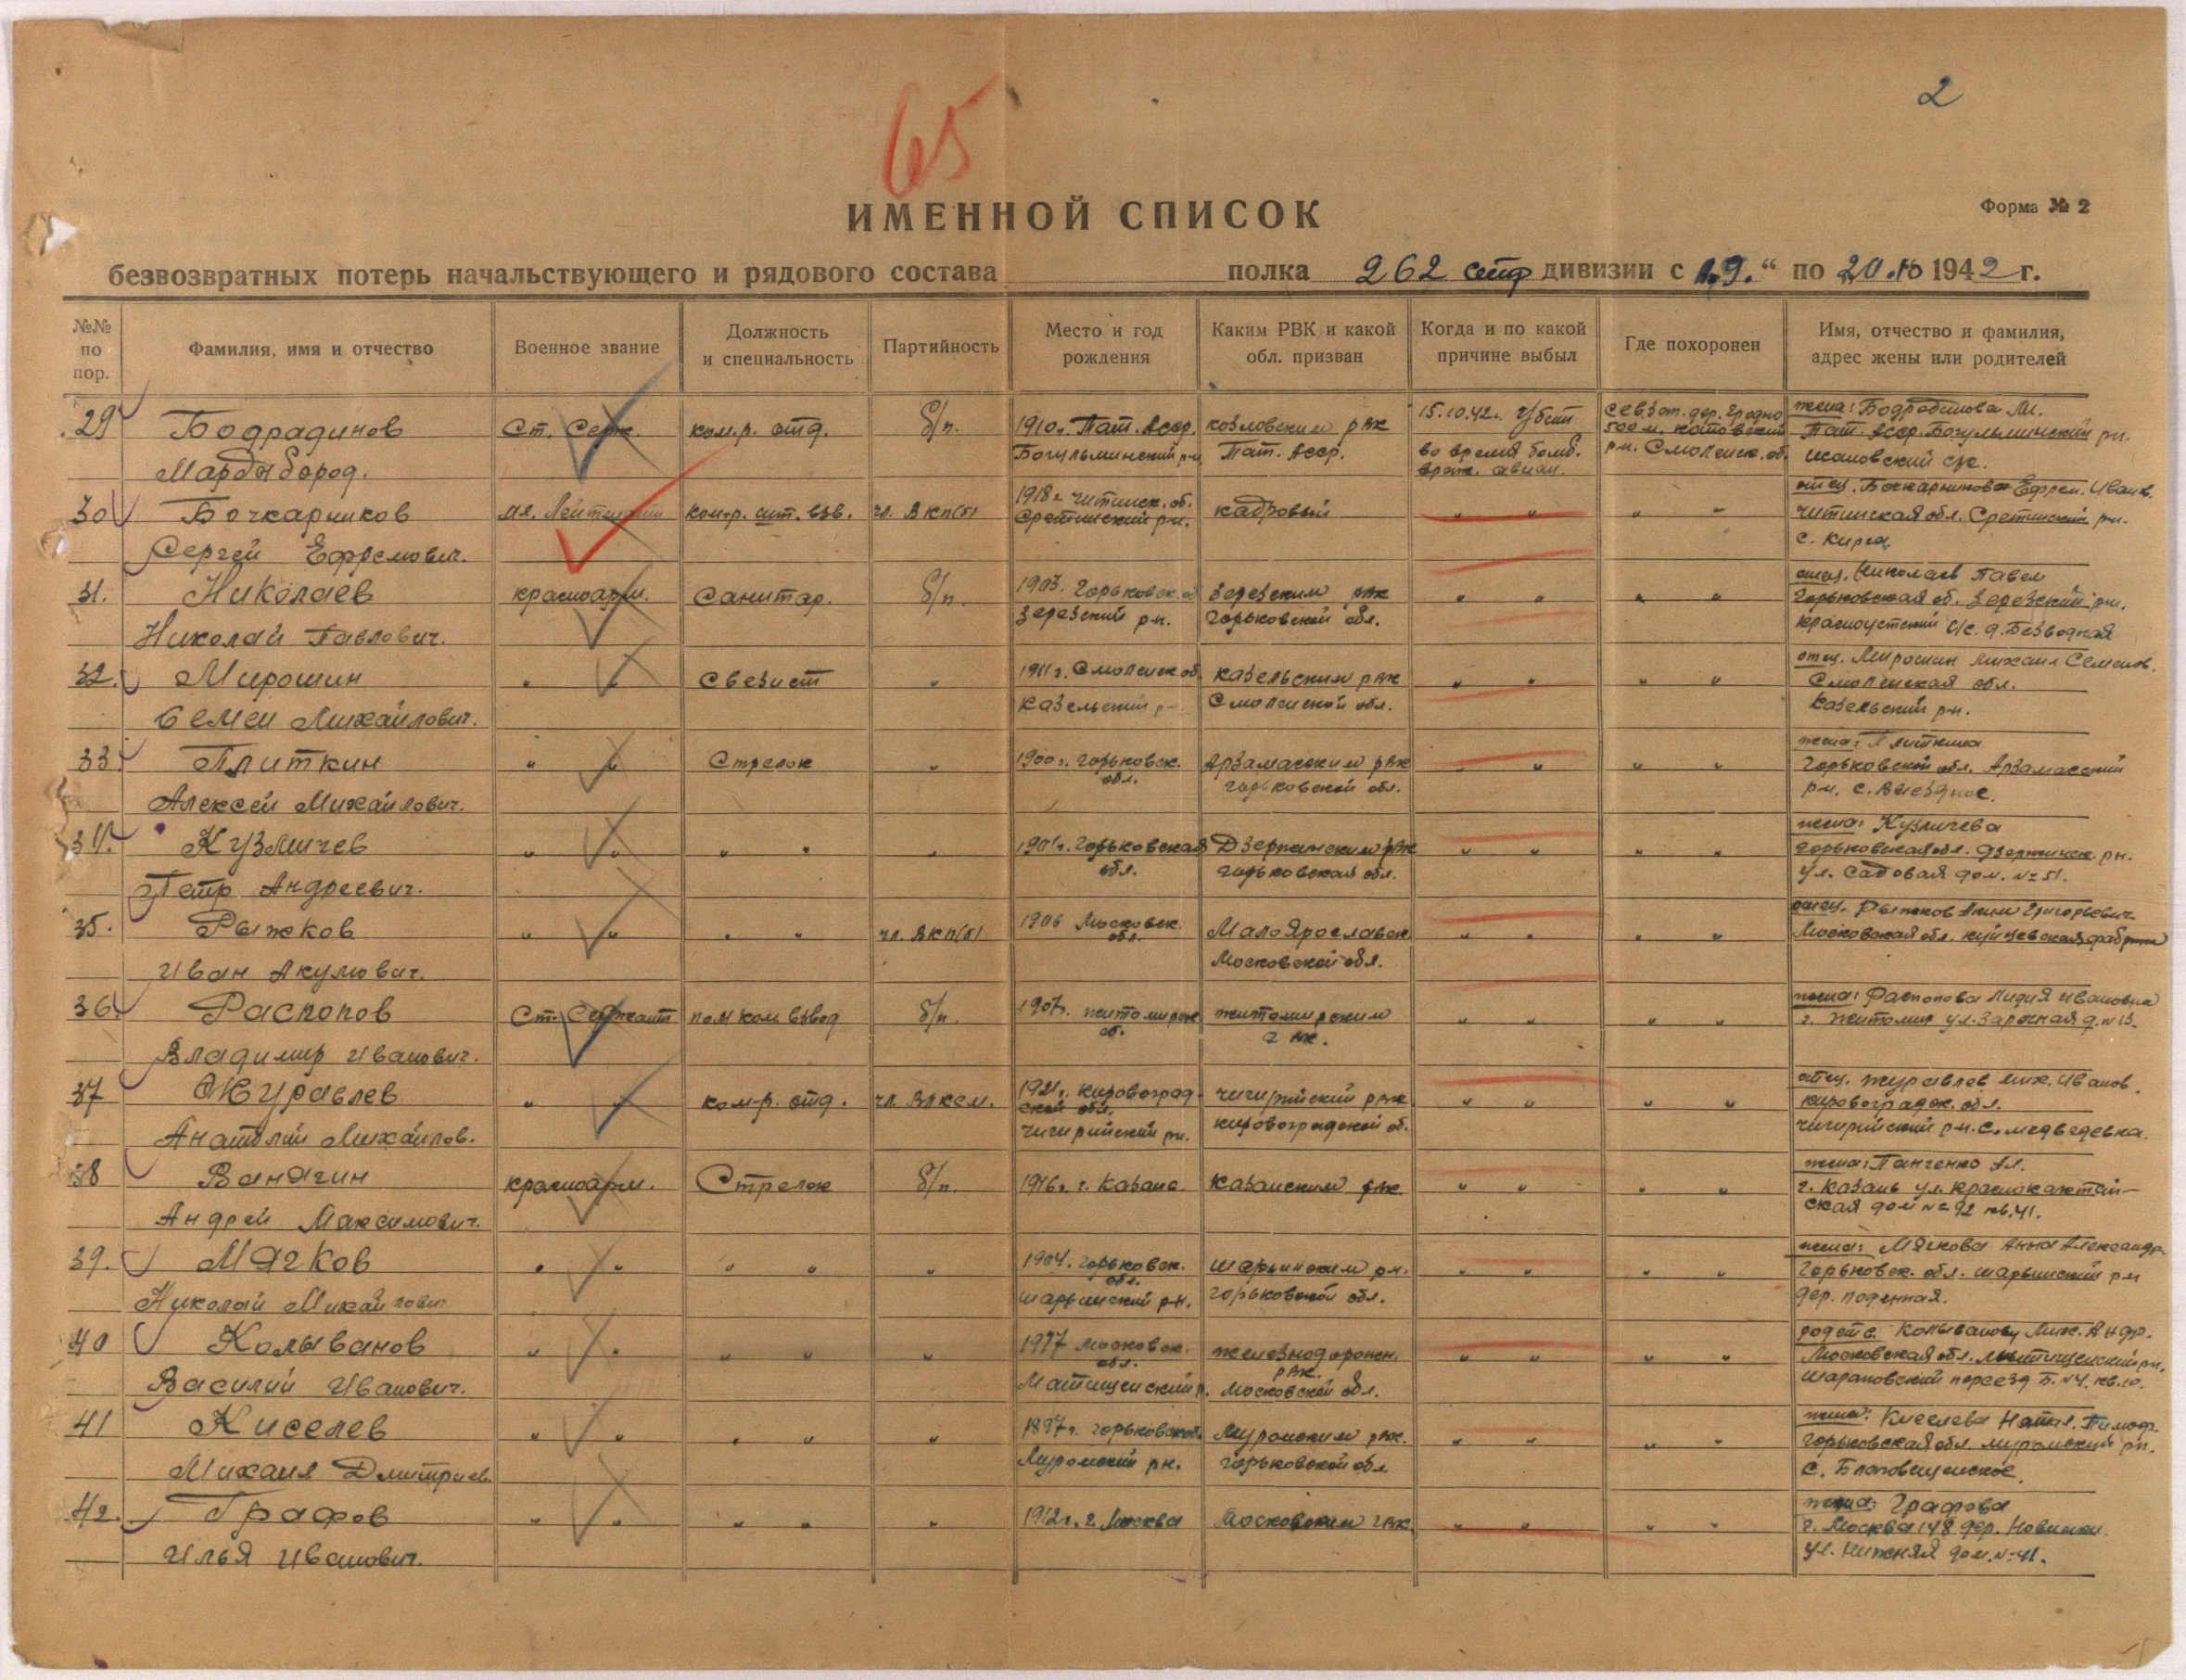 2
65
ИМЕННОЙ СПИСОК
Форма № 2
безвозвратных потерь начальствующего и рядового состава полка 262 дивизии с "9." по 20.10 1942 г.
№№ по пор.
Фамилия, имя и отчество
Военное звание
Должность и специальность
Партийность
Место и год рождения
Каким РВК и какой обл. призван
Когда и по какой причине выбыл
Где похоронен
Имя, отчество и фамилия, адрес жены или родителей
29 Бодрадинов Ст. Серж. ком. отд. б/п. 1910г. Тат. Асср. козловским рвк 15.10.42г. Убит жена: М.
Богульминский р-н Тат. Асср. во время бомб. враж. авиац. р-н. Смоленск. об. Тат. Асср. Богульминский р-н.
30 Бочкарников мл. Лейтенант ком-р. взв. чл. ВКП(б) 1918г. Читинск. об. кадровый " " " " отец. Бочкарников Ефрем. Иванов.
Сергей Ефремович. Сретинский р-н. Читинская обл. Сретинский р-н.
31. Николаев красноарм. Санитар. б/п. 1903. Горьковск. рвк " " " " отец. Николаев Павел
Николай Павлович. р-н. Горьковской обл. Горьковская об. р-н.
Красноустский с/с. д. Безводная
32. Мирошин " " Связист " 1911г. Смоленск об. казельским рвк " " " " отец. Мирошин Михаил Семенов.
Семен Михайлович. казельский р-н Смоленской обл. Смоленская обл.
казельский р-н.
33. Плиткин " " Стрелок " 1900г. Горьковск. обл. Арзамасским рвк " " " " жена: Плиткина
Алексей Михайлович. Горьковской обл. Горьковской обл. Арзамасский
р-н. с. Выездное.
34. Кузмичев " " " " " Горьковская обл. рвк " " " " жена: Кузмичева
Петр Андреевич. Горьковская обл. Горьковская обл. р-н.
ул. Садовая дом. № 51.
35. Рыжков " " " " чл. ВКП(б) 1906 Московск. обл. Малоярославск " " " " отец. Рыжков Григорьевич
Иван Акумович. Московской обл. Московская обл.
36. Распопов Ст. Сержант пом ком взвод б/п. 1907г. житомирск об. житомирским г вк. " " " " жена: Распопова Лидия Ивановна
Владимир Иванович. г. Житомир ул. Заречная д. № 13.
37 Журавлев " " ком-р. отд. чл. влксм. 1921г. Кировоградской обл. чигирийский рвк " " " " отец. Журавлев Мих. Иванов.
Анатолий Михайлов. чигирийский р-н. кировоградской об. кировоградск. обл.
чигирийский р-н. с. медведевка.
38 Ванягин красноарм. Стрелок б/п. 1916г. г. Казань. Казанским рвк. " " " " жена: Панченко
Андрей Максимович. г. Казань ул.
ская дом № 92 кв. 41.
39. Мячков " " " " " 1904. Горьковск. обл. шарьинским р-н. " " " " жена: Мячкова Анна Александр.
Николай Михайлович шарьинский р-н. Горьковской обл. Горьковск. обл. шарьинский р-н
дер.
40 Колыванов " " " " " московск. обл. железнодорожн. рвк. " " " " Колыванову Мих. Андр.
Василий Иванович. Московской обл. Московская обл. мытищенский р-н.
41 Киселев " " " " " 1897г. Горьковской. Муромским рвк. " " " " жена: Киселева Натал. Тимоф.
Михаил Дмитриев. Муромский р-н. Горьковской обл. Горьковская обл. муромский р-н.
с. Благовещенское.
42. Графов " " " " " 1912г. г. Москва Московским гвк " " " " жена: Графова
Илья Иванович. г. Москва 148 дер.
ул. Нижняя дом. № 41.